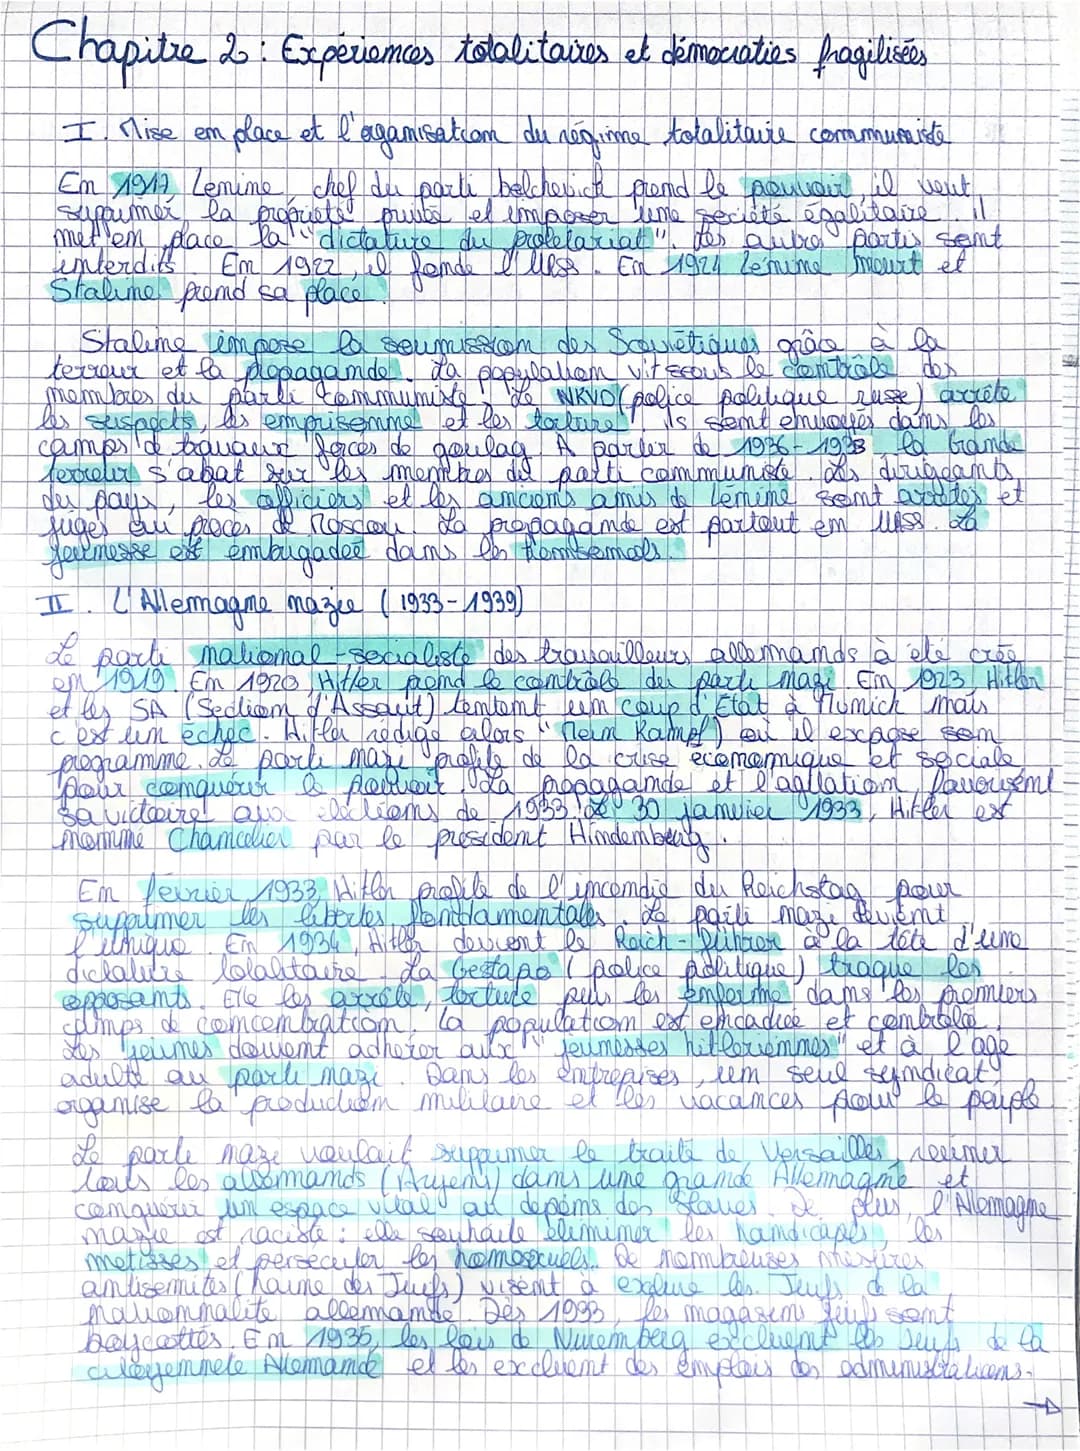 Chapitre 2 : Expériences totalitaires et démocraties fragilisées
I. Mise en place et l'oganisation du régime totalitaire communiste
En 1917 Lénine, chef du parti bolchevich prend le pouvoir il veut
supprimer la propriété privée et imposer une société égalitaire. il
met en place la "dictature du proletariat". Les autres partis sont
interdits. En 1922, il fonde l'URSS. En 1924 Lénine meurt et
Staline prend sa place.
Staline impose la soumission des Soviétiques grâce à la
terreur et la propagande. La population vit sous le contrôle des
membres du parti communiste. Le NKVD (police politique russe) arrête
les suspects, les emprisonne et les torture, ils sont envoyés dans les
camps de travaux forcés de goulag. A partir de 1936-1938 la Grande
terreur s'abat sur les membres du parti communiste. Les dirigeants
du pays, les officiers et les anciens amis de Lénine sont arrêtés et
jugés au procès de Moscou. La propagande est partout em URSS. La
jeunesse est embrigadée dans les Komsemols.
II. L'Allemagne nazie (1933-1939)
Le parti national-socialiste des travailleurs allemands à été créé
en 1919. En 1920, Hitler prend le contrôle du parti nazi. En 1923 Hitler
et les SA (Section d'Assaut) tentent um coup d'État à Munich mais
c'est un échec. Hitler rédige alors "Mein Kampf" où il expose son
programme. Le parti nazi profite de la crise économique et sociale
pour conquérir le pouvoir. La propagande et l'agitation favorisent
sa victoire aux élections de 1933. Le 30 janvier 1933, Hitler est
nommé Chancelier par le président Hindemberg.
En février 1933, Hitler profite de l'incendie du Reichstag pour
supprimer les libertés fondamentales. Le parti nazi devient
l'unique. En 1934, Hitler devient le Reich-Führer à la tête d'une
dictature totalitaire. La Gestapo (police politique) traque les
opposants. Elle les arrête, torture puis les enferme dans les premiers
camps de concentration. La population est encadrée et contrôlée.
Les jeunes doivent adhérer aux "jeunesses hitleriennes" et à l'age
adulte au parti nazi. Dans les entreprises, um seul syndicat
organise la production militaire et les vacances pour le peuple.
Le parti nazi voulait supprimer le traité de Versailles, réunir
tous les allemands (Aryens) dans une grande Allemagne et
conquérir um espace vital au dépens des Slaves. De plus, l'Allemagne
nazie est raciste : elle souhaite éliminer les handicapés, les
métisses et persécuter les homosexuels. De nombreuses mesures
antisémites (haine des Juifs) visent à exclure les Juifs de la
nationnalité allemande. Dès 1933, les magasins juifs sont
boycottés. En 1935, les lois de Nuremberg excluent les Juifs de la
citoyenneté Allemande et les excluent des emplois des administrations.
→